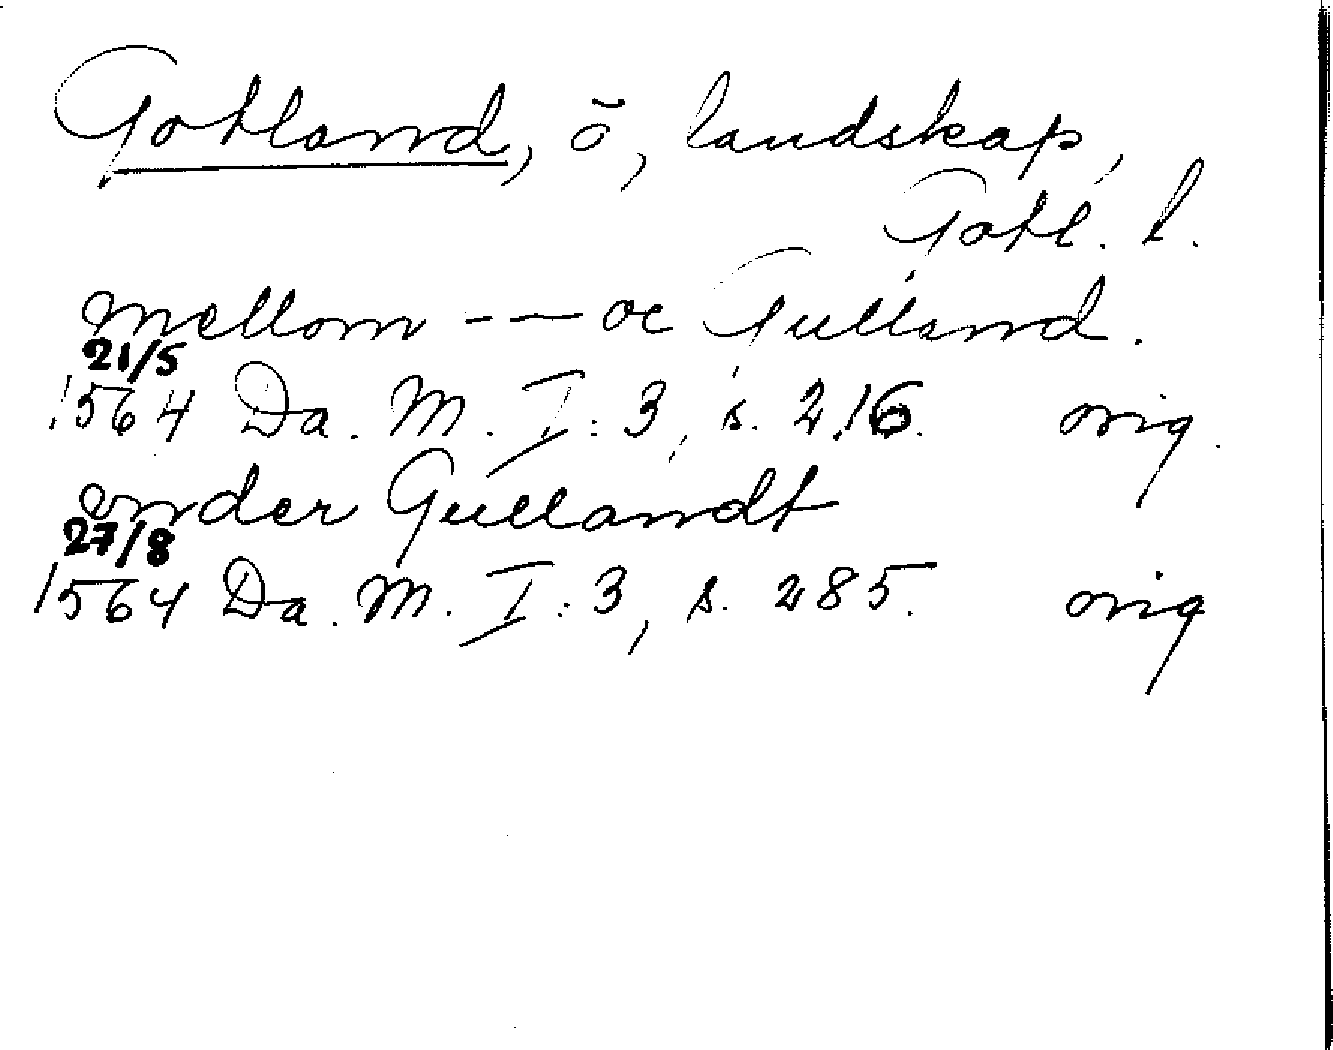 Gotland, ö, landskap,
Gotl. l.
mellom --- oc Gulland.
21/5
1564 Da. M. I:3, s. 216. orig.
onder Gullandt
27/8
1564 Da. M. I:3, s. 285. orig